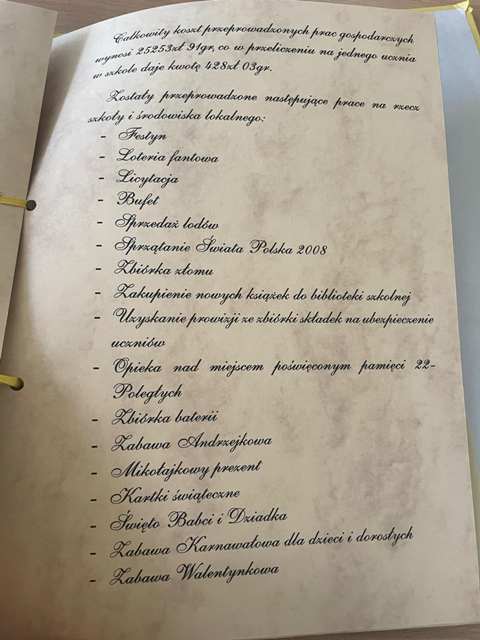 Całkowity koszt przeprowadzonych prac gospodarczych
wynosi 25253zł 91gr, co w przeliczeniu na jednego ucznia
w szkole daje kwotę 428zł 03gr.
Zostały przeprowadzone następujące prace na rzecz
szkoły i środowiska lokalnego:
- Festyn
- Loteria fantowa
- Licytacja
- Bufet
- Sprzedaż lodów
- Sprzątanie Świata Polska 2008
- Zbiórka złomu
- Zakupienie nowych książek do biblioteki szkolnej
- Uzyskanie prowizji ze zbiórki składek na ubezpieczenie
uczniów
- Opieka nad miejscem poświęconym pamięci 22-
Poległych
- Zbiórka baterii
- Zabawa Andrzejkowa
- Mikołajkowy prezent
- Kartki świąteczne
- Święto Babci i Dziadka
- Zabawa Karnawałowa dla dzieci i dorosłych
- Zabawa Walentynkowa